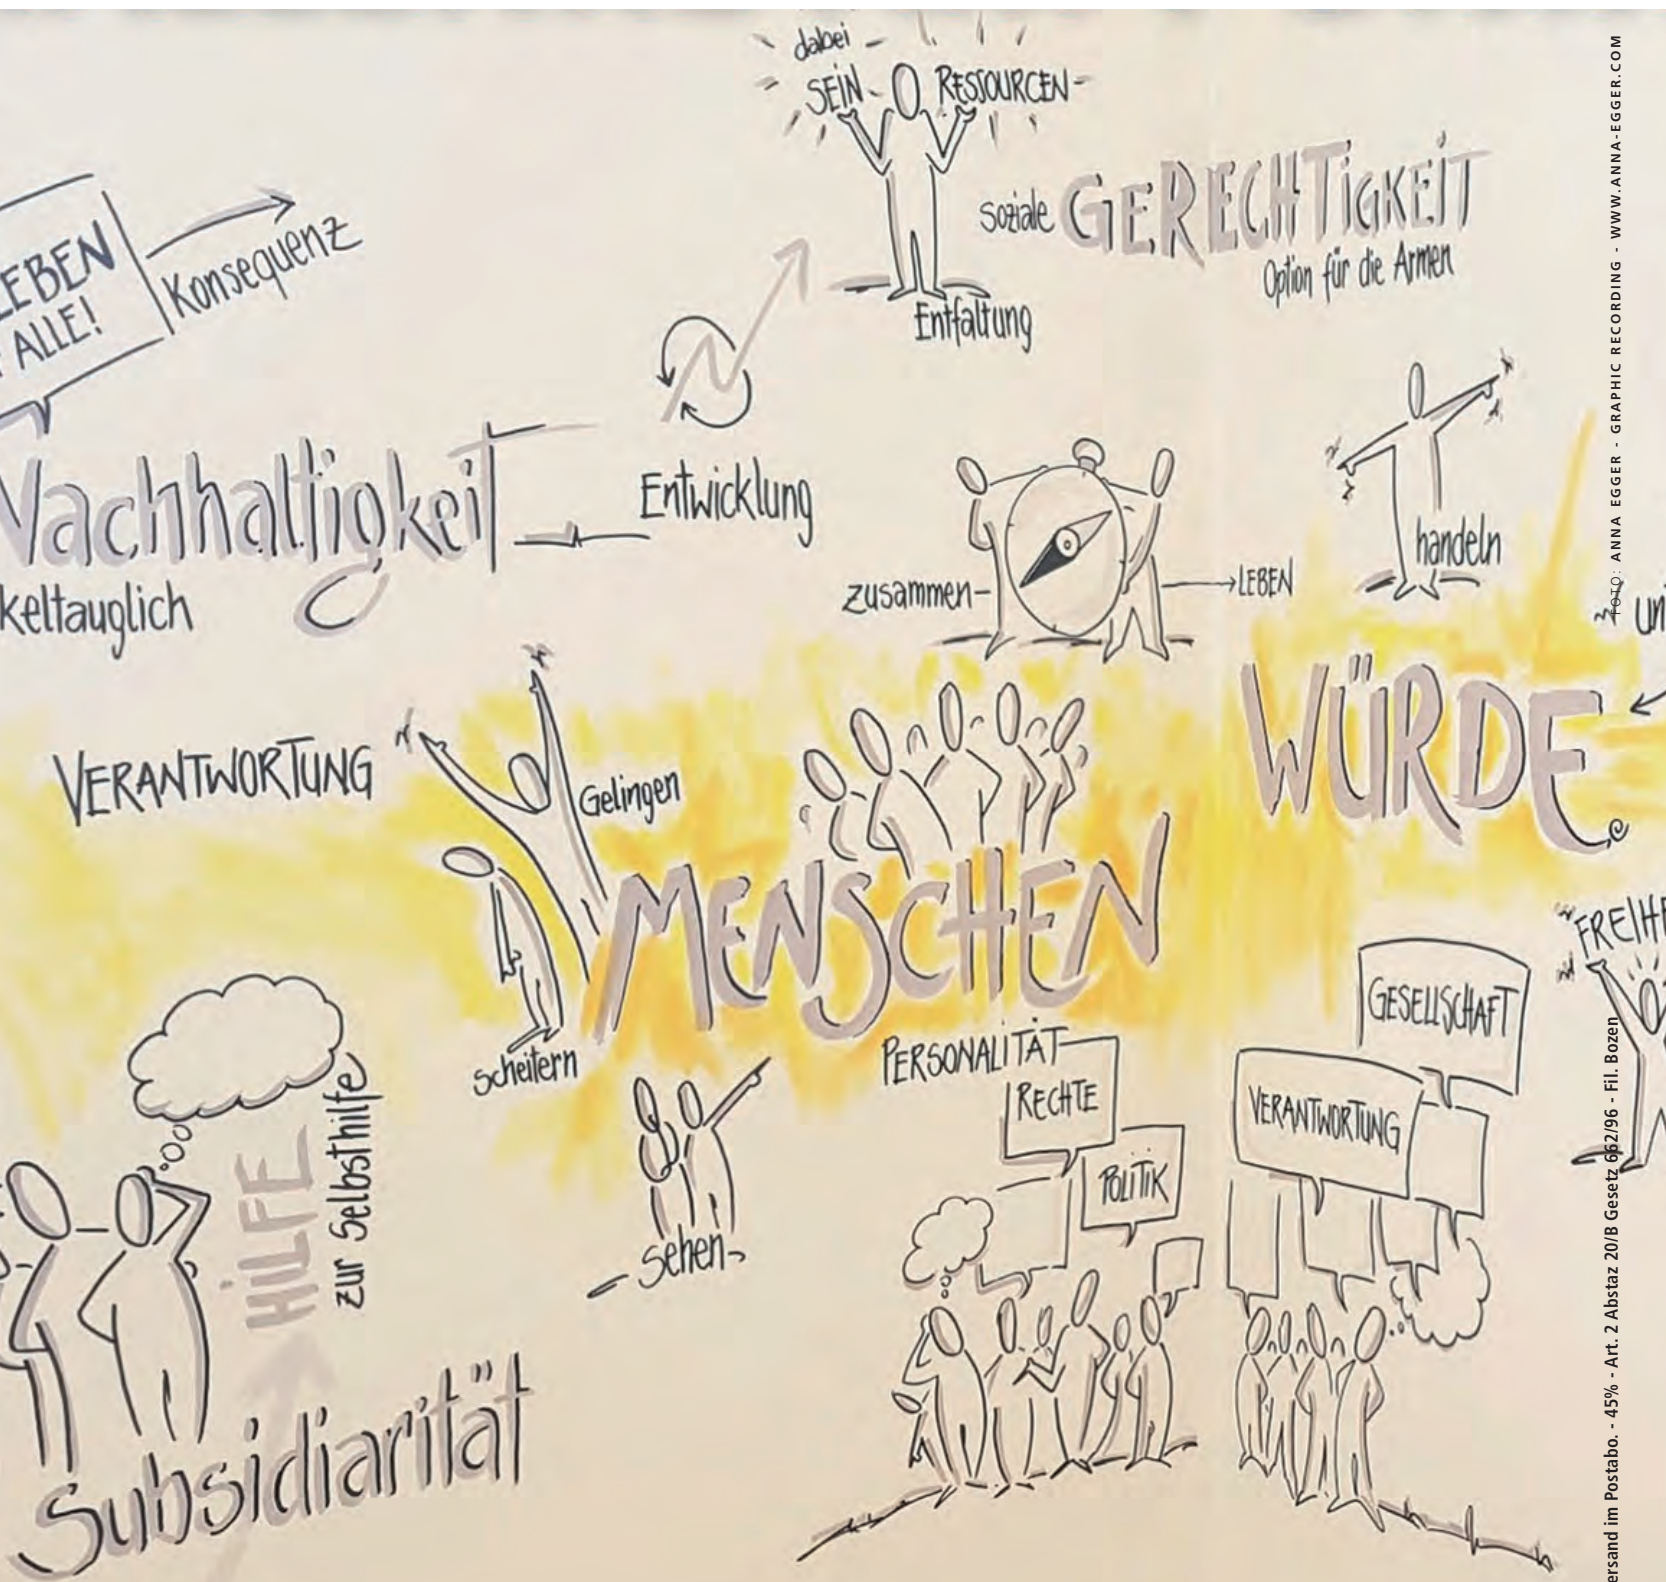 dabei
SEIN
RESSOURCEN
soziale GERECHTIGKEIT
Option für die Armen
Entfaltung
LEBEN
ALLE!
Konsequenz
Nachhaltigkeit
keltauglich
Entwicklung
zusammen
LEBEN
handeln
WÜRDE
VERANTWORTUNG
Gelingen
MENSCHEN
scheitern
sehen
PERSONALITÄT
RECHTE
POLITIK
GESELLSCHAFT
VERANTWORTUNG
FREIHE
HILFE
zur Selbsthilfe
Subsidiarität
FOTO: ANNA EGGER - GRAPHIC RECORDING - WWW.ANNA-EGGER.COM
ersand im Postabo. - 45% - Art. 2 Abstaz 20/B Gesetz 662/96 - Fil. Bozen